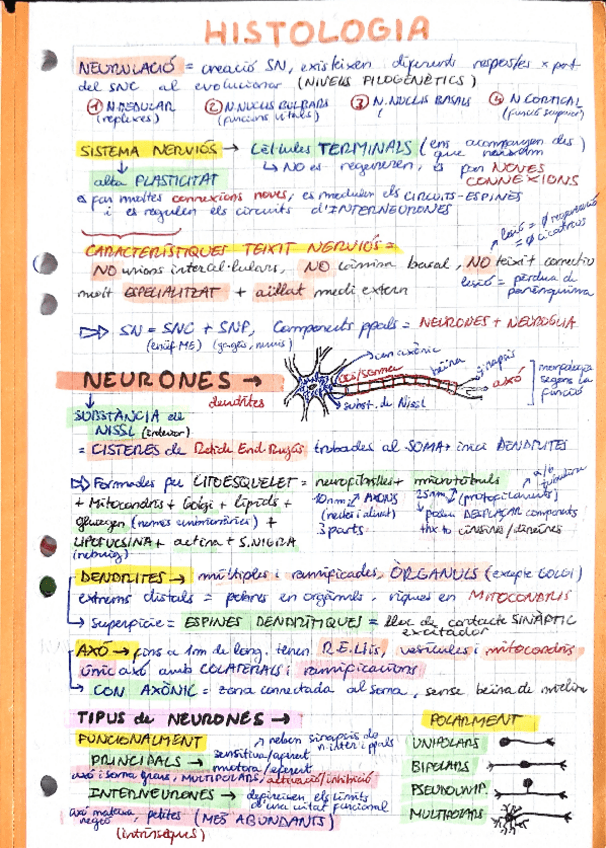 HISTOLOGIA
NEURULACIÓ = creació SN, existeixen diferents respostes x part
del SNC al evolucionar (NIVELLS FILOGENÈTICS)
① N. MEDULAR ② N. NUCLIS BULBARS ③ N. NUCLIS BASALS ④ N. CORTICAL
(reflexes) (funcions vitals) (funció superior)
SISTEMA NERVIÓS → Cèl·lules TERMINALS (ens acompanyen des)
↳ NO es regeneren, es fan NOVES
CONNEXIONS
alta PLASTICITAT
es fan moltes connexions noves, es modulen els CIRCUITS-ESPINES
i es regulen els circuits d'INTERNEURONES
lesió = Ø regeneració
= Ø cicatrius
CARACTERÍSTIQUES TEIXIT NERVIÓS =
NO unions intercel·lulars, NO làmina basal, NO teixit connectiu
molt ESPECIALITZAT + aïllat medi extern
lesió = pèrdua de
parènquima
SN = SNC + SNP, Components ppals = NEURONES + NEUROGLIA
(enèf. ME) (ganglis, nervis)
NEURONES →
dendrites
con axònic
soma
beina
sinapsis
axó
subst. de Nissl
morfologia
segons la
funció
SUBSTÀNCIA de
NISSL (interior)
= CISTERNES de Reticle End. Rugós trobades al SOMA + inici DENDRITES
Formades per CITOESQUELET = neurofibril·les + microtúbuls
α/β tubulina
+ Mitocondris + Golgi + lípids + 10nm AXONS 25nm (protofilaments)
glucogen (només embrionàries) + poden DESPLAÇAR components
3 parts thx to cinesines/dineïnes
LIPOFUCSINA + actina + S. NIGRA
DENDRITES → múltiples i ramificades, ÒRGANULS (excepte GOLGI)
extrems distals = pobres en orgànuls, riques en MITOCONDRIS
↳ Superfície = ESPINES DENDRÍTIQUES = lloc de contacte SINÀPTIC
excitador
AXÓ → fins a 1m de long. tenen R.E. Llis, vesícules i mitocondris
únic axó amb COLATERALS i ramificacions
↳ CON AXÒNIC = zona connectada al soma, sense beina de mielina
TIPUS de NEURONES →
POLARMENT
FUNCIONALMENT
reben sinapsis de
n. inter i ppals
PRINCIPALS → sensitiva/aferent
motora/eferent
axó i soma grans, MULTIPOLARS, activació/inhibició
INTERNEURONES → defineixen els límits
d'una unitat funcional
petites (MÉS ABUNDANTS)
(intrínseques)
UNIPOLARS
BIPOLARS
PSEUDOUNIP.
MULTIPOLARS